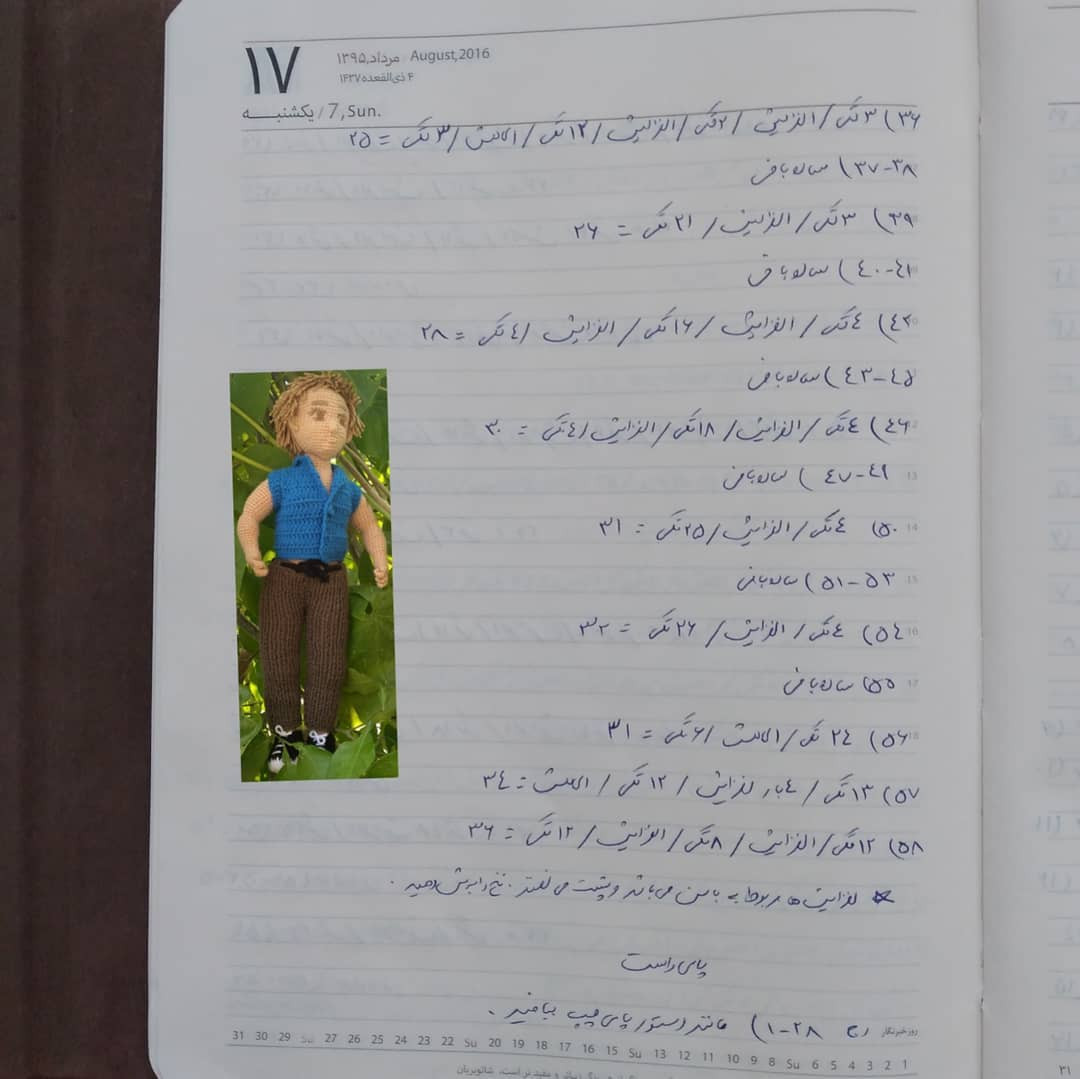 ۱۷
مرداد,۱۳۹۵ August,2016
۴ ذی‌القعده ۱۴۳۷
یکشنبه / 7,Sun.
۳۶) ۳تکی / افزایش / ۲تکی / افزایش / ۱۲ تکی / کاهش / ۳ تکی = ۲۵
۳۷-۳۸) ساده بافی
۳۹) ۳تکی / افزایش / ۲۱ تکی = ۲۶
۴۰-۴۱) ساده بافی
۴۲) ۴تکی / افزایش / ۱۶تکی / افزایش / ۴ تکی = ۲۸
۴۳-۴۵) ساده بافی
۴۶) ۴تکی / افزایش / ۱۸تکی / افزایش / ۴ تکی = ۳۰
۴۷-۴۹) ساده بافی
۵۰) ۴تکی / افزایش / ۲۵تکی = ۳۱
۵۱-۵۳) ساده بافی
۵۴) ۴تکی / افزایش / ۲۶ تکی = ۳۲
۵۵) ساده بافی
۵۶) ۲۴ تکی / کاهش / ۶تکی = ۳۱
۵۷) ۱۳تکی / ۴بار افزایش / ۱۲ تکی / کاهش = ۳۴
۵۸) ۱۲تکی / افزایش / ۸تکی / افزایش / ۱۲ تکی = ۳۶
افزایش ها مربوط به باسن می باشد و پشت می افتد. نخ را برش دهید.
پای راست
ر ۱-۲۸) مانند دستور پای چپ ببافید.
روز خبرنگار
31 30 29 Su 27 26 25 24 23 22 Su 20 19 18 17 16 15 Su 13 12 11 10 9 8 Su 6 5 4 3 2 1